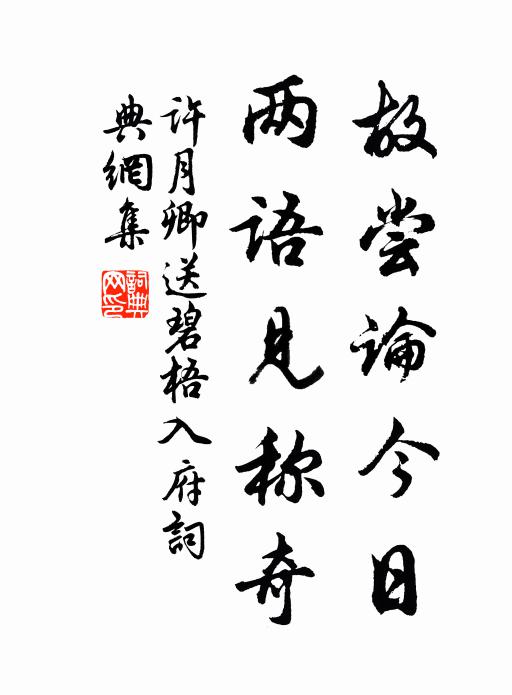 故尝论今日
两语见称奇
许月卿送碧梧入府詞
典網集
詞典网印